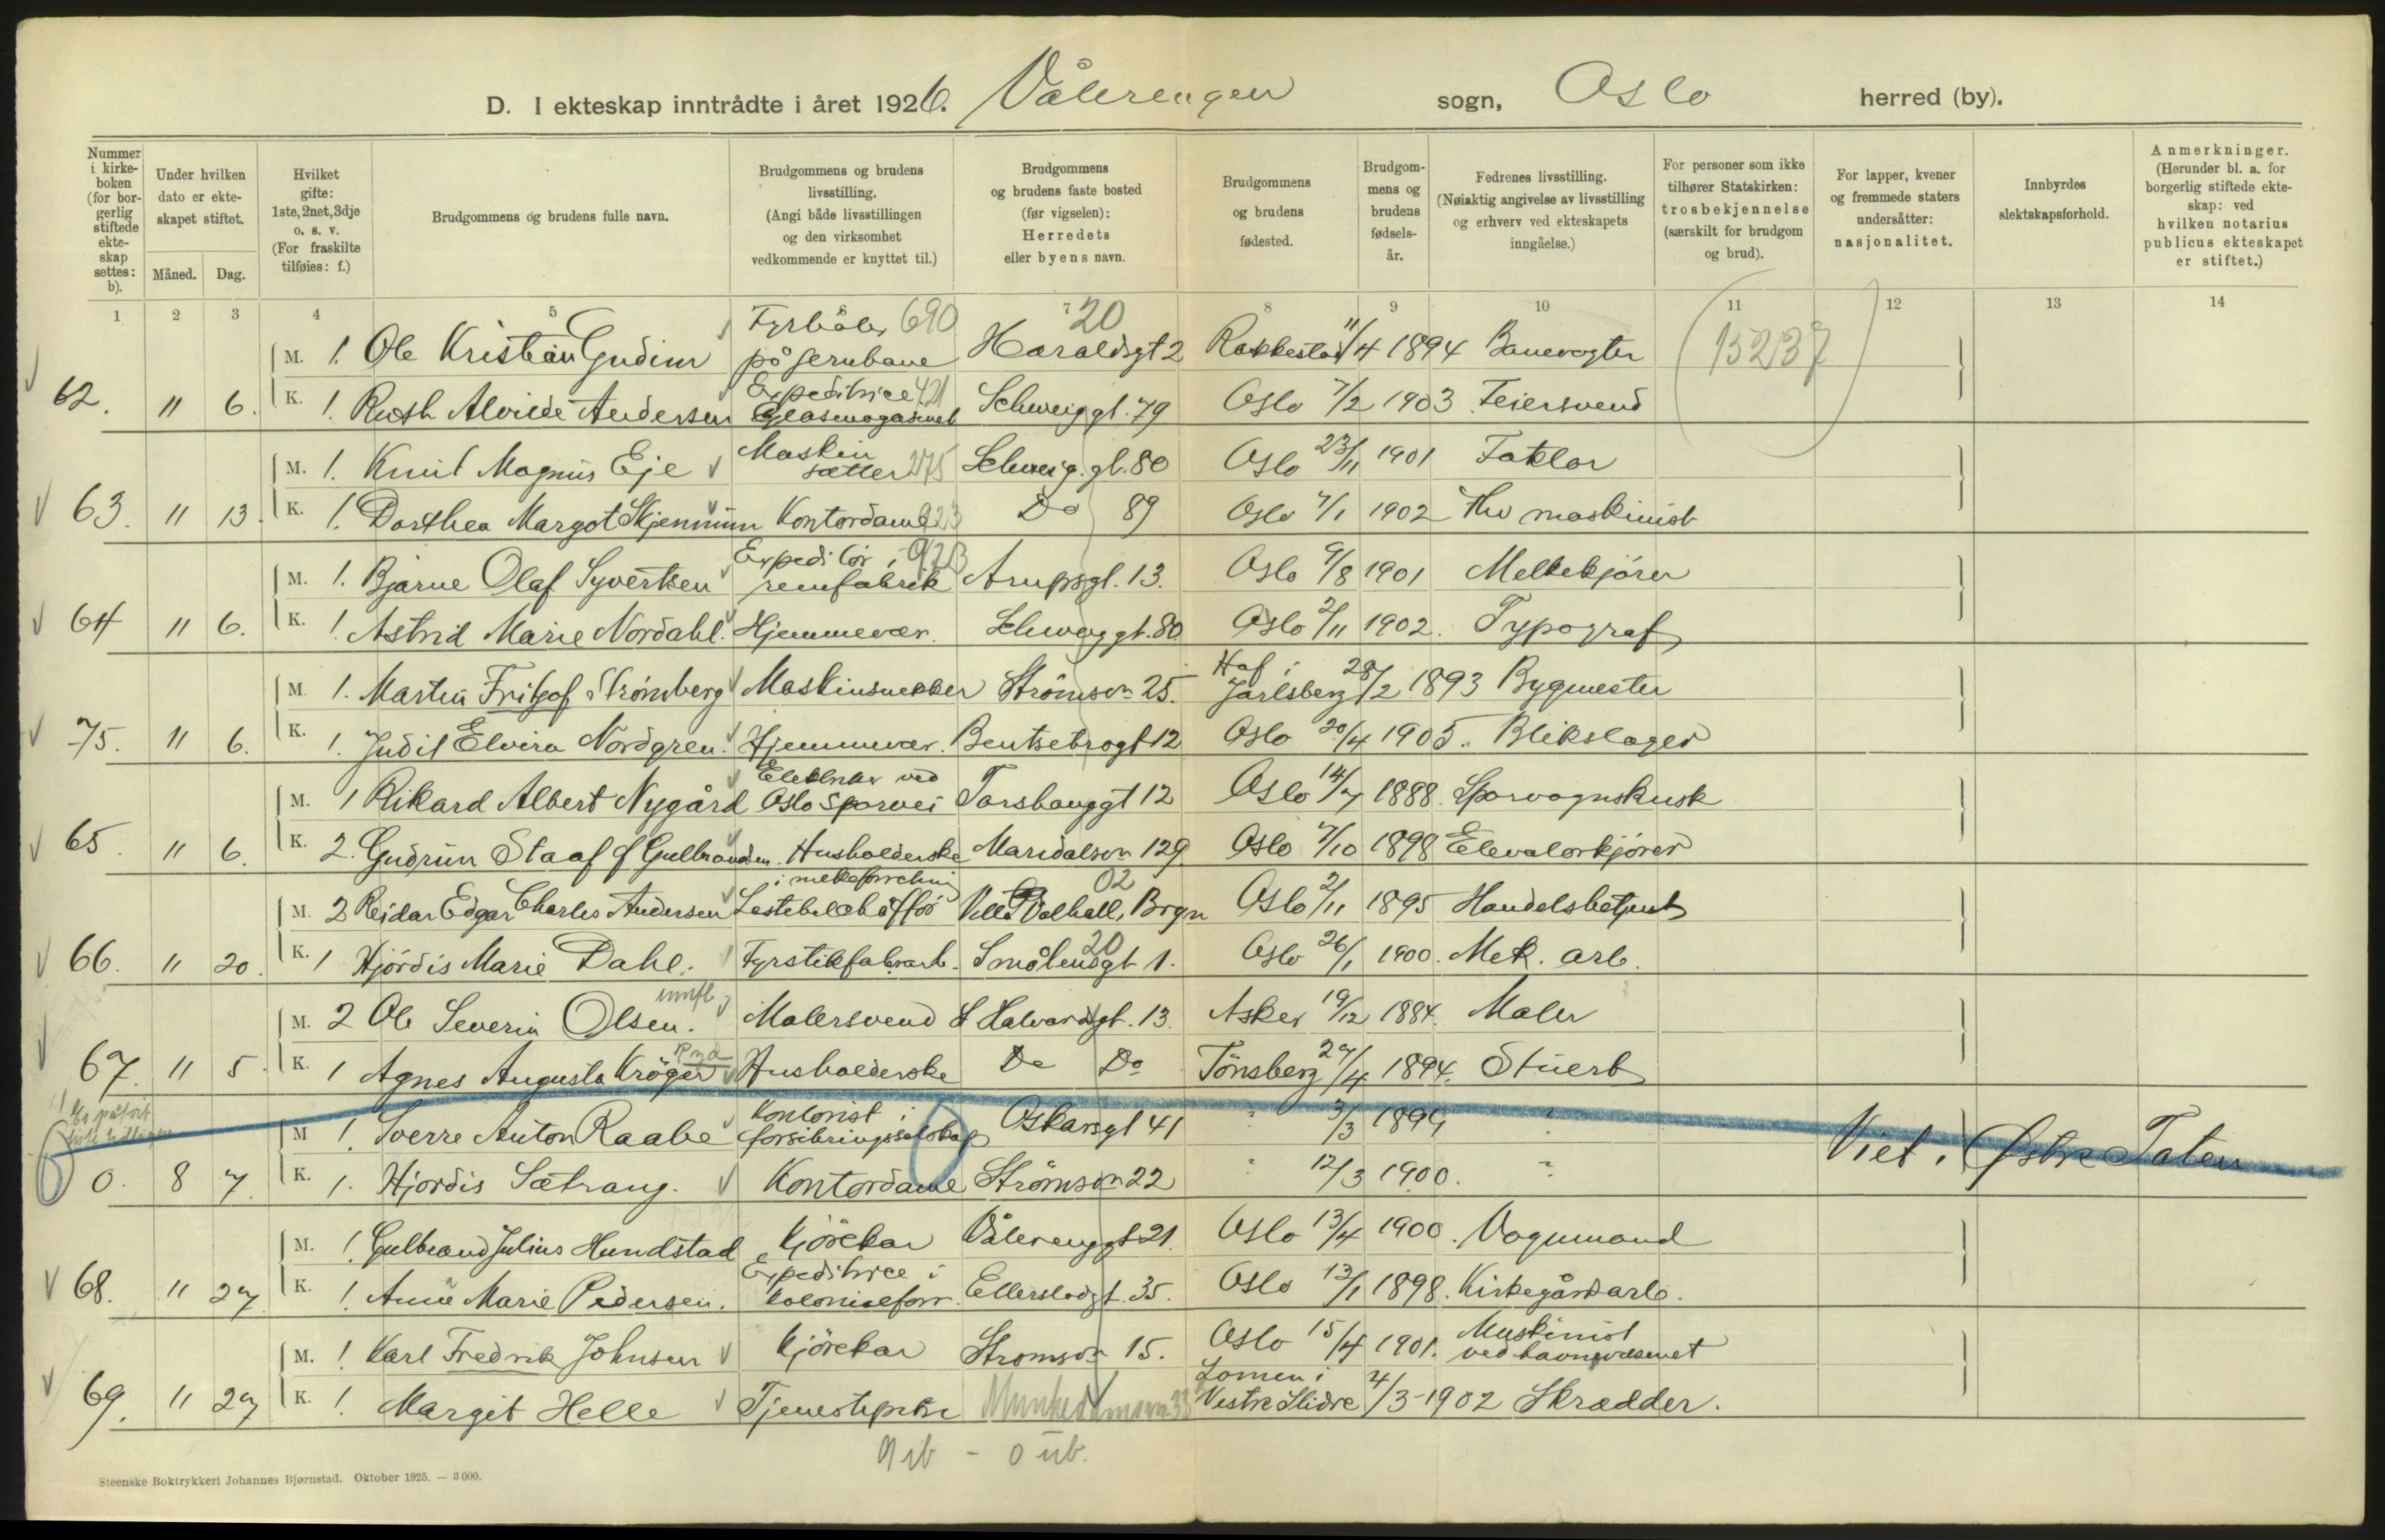 D. I ekteskap inntrådte i året 1926. Vålerengen sogn, Oslo herred (by).
Nummer i kirkeboken (for borgerlig stiftede ekteskap settes: b).
Under hvilken dato er ekteskapet stiftet.
Måned. Dag.
Hvilket gifte: 1ste, 2net, 3dje o. s. v. (For fraskilte tilføies: f.)
Brudgommens og brudens fulle navn.
Brudgommens og brudens livsstilling. (Angi både livsstillingen og den virksomhet vedkommende er knyttet til.)
Brudgommens og brudens faste bosted (før vigselen): Herredets eller byens navn.
Brudgommens og brudens fødested.
Brudgommens og brudens fødselsår.
Fedrenes livsstilling. (Nøiaktig angivelse av livsstilling og erhverv ved ekteskapets inngåelse.)
For personer som ikke tilhører Statskirken: trosbekjennelse (særskilt for brudgom og brud).
For lapper, kvener og fremmede staters undersåtter: nasjonalitet.
Innbyrdes slektskapsforhold.
Anmerkninger. (Herunder bl. a. for borgerlig stiftede ekteskap: ved hvilken notarius publicus ekteskapet er stiftet.)
1 2 3 4 5 7 8 9 10 11 12 13 14
Fyrbøter 690 20
M. 1. Ole Kristian Gudim på jernbane Haraldsgt 2 Rakkestad 11/4 1894 Banevogter (15237)
Expeditrice 421
62. " 6. K. 1. Ruth Alvilde Andersen Glasmagasinet Schweiggt. 79 Oslo 7/2 1903 Feiersvend
M. 1. Knut Magnus Eje Maskinsætter 275 Schweig.gt. 80 Oslo 23/11 1901 Faktor
63. " 13. K. 1. Dorthea Margot Skjennum Kontordame 923 Do 89 Oslo 7/1 1902 Fhv maskinist
Expeditør i 923
M. 1. Bjarne Olaf Syvertsen remfabrik Arupsgt. 13. Oslo 9/8 1901 Melkekjører
64 " 6. K. 1. Astrid Marie Nordahl. Hjemmevær. Schweiggt. 80 Oslo 2/11 1902. Typograf
M. 1. Martin Fritjof Strømberg Maskinsnekker Strømsvn 25. Hof i Jarlsberg 28/2 1893 Bygmester
75. " 6. K. 1. Judit Elvira Nordgren. Hjemmevær. Bentsebrogt 12 Oslo 20/4 1905. Blikslager
Elektriker ved
M. 1 Rikard Albert Nygård Oslo Sporvei Torshauggt 12 Oslo 14/7 1888. Sporvognskusk
65. " 6. K. 2. Gudrun Staaf f Gulbrandsen. Husholderske Maridalsvn 129. Oslo 7/10 1898 Elevatorkjører
i melkeforretning 02
M. 2 Reidar Edgar Charles Andersen Lastebilchaffør Villa Valhall, Bryn Oslo 2/11 1895 Handelsbetjent
66. " 20. K. 1 Hjördis Marie Dahl. Fyrstikfabrarb. Smålensgt 1. 20 Oslo 26/1 1900. Mek. arb.
M. 2 Ole Severin Olsen. Malersvend St Halvardsgt. 13. Asker 19/12 1884. Maler
67. " 5. K. 1 Agnes Augusta Kröger Husholderske Do Do Tönsberg 27/4 1894. Stuert
Kontorist i
M 1. Sverre Anton Raabe forsikringsselskap Oskarsgt 41 " 3/3 1899 " Viet i Østre Toten
0. 8 7. K. 1. Hjördis Sætrang. Kontordame Strømsvn 22 " 12/3 1900. "
M. 1. Gulbrand Julius Hundstad Kjørekar Vålerenggt 21. Oslo 13/4 1900. Vognmand
Expeditrice i
68. " 27 K. 1. Anna Marie Pedersen. kolonialforr. Ellerslodgt. 35. Oslo 13/1 1898. Kirkegårdsarb.
M. 1. Karl Fredrik Johnsen Kjørekar Strømsvn 15. Oslo 15/4 1901. Maskinist ved havnevæsenet
69. " 27 K. 1. Margit Helle Tjenestepike Munkedamsvn 33 Lomen i Vestre Slidre 4/3 1902 Skrædder.
9 ib - 0 ub.
Steenske Boktrykkeri Johannes Bjørnstad. Oktober 1925. — 3000.